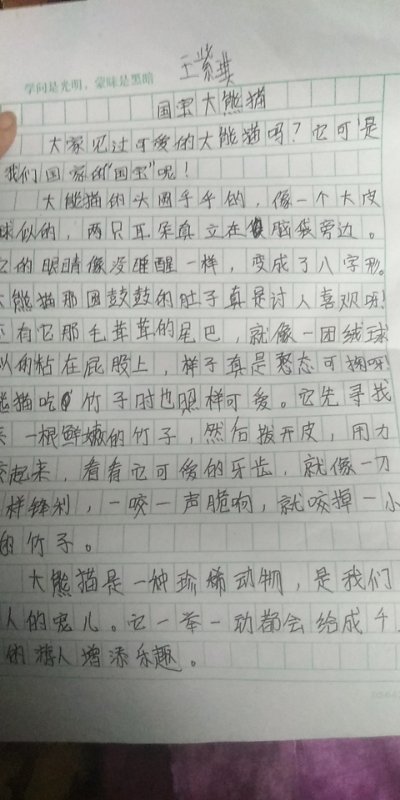 学问是光明，蒙昧是黑暗
王紫
国宝大熊猫
大家见过可爱的大熊猫吗？它可是
我们国家的“国宝”呢！
大熊猫的头圆乎乎的，像一个大皮
球似的，两只耳朵真立在脑袋旁边。
它的眼睛像没睡醒一样，变成了八字形。
大熊猫那圆鼓鼓的肚子真是讨人喜欢呀！
还有它那毛茸茸的尾巴，就像一团绒球
似的粘在屁股上，样子真是憨态可掬呀！
熊猫吃竹子时也照样可爱。它先寻找
一根鲜嫩的竹子，然后拨开皮，用力
咬起来，看看它可爱的牙齿，就像一刀
样锋利，一咬一声脆响，就咬掉一小
的竹子。
大熊猫是一种珍稀动物，是我们
人的宠儿。它一举一动都会给成千
的游人增添乐趣。